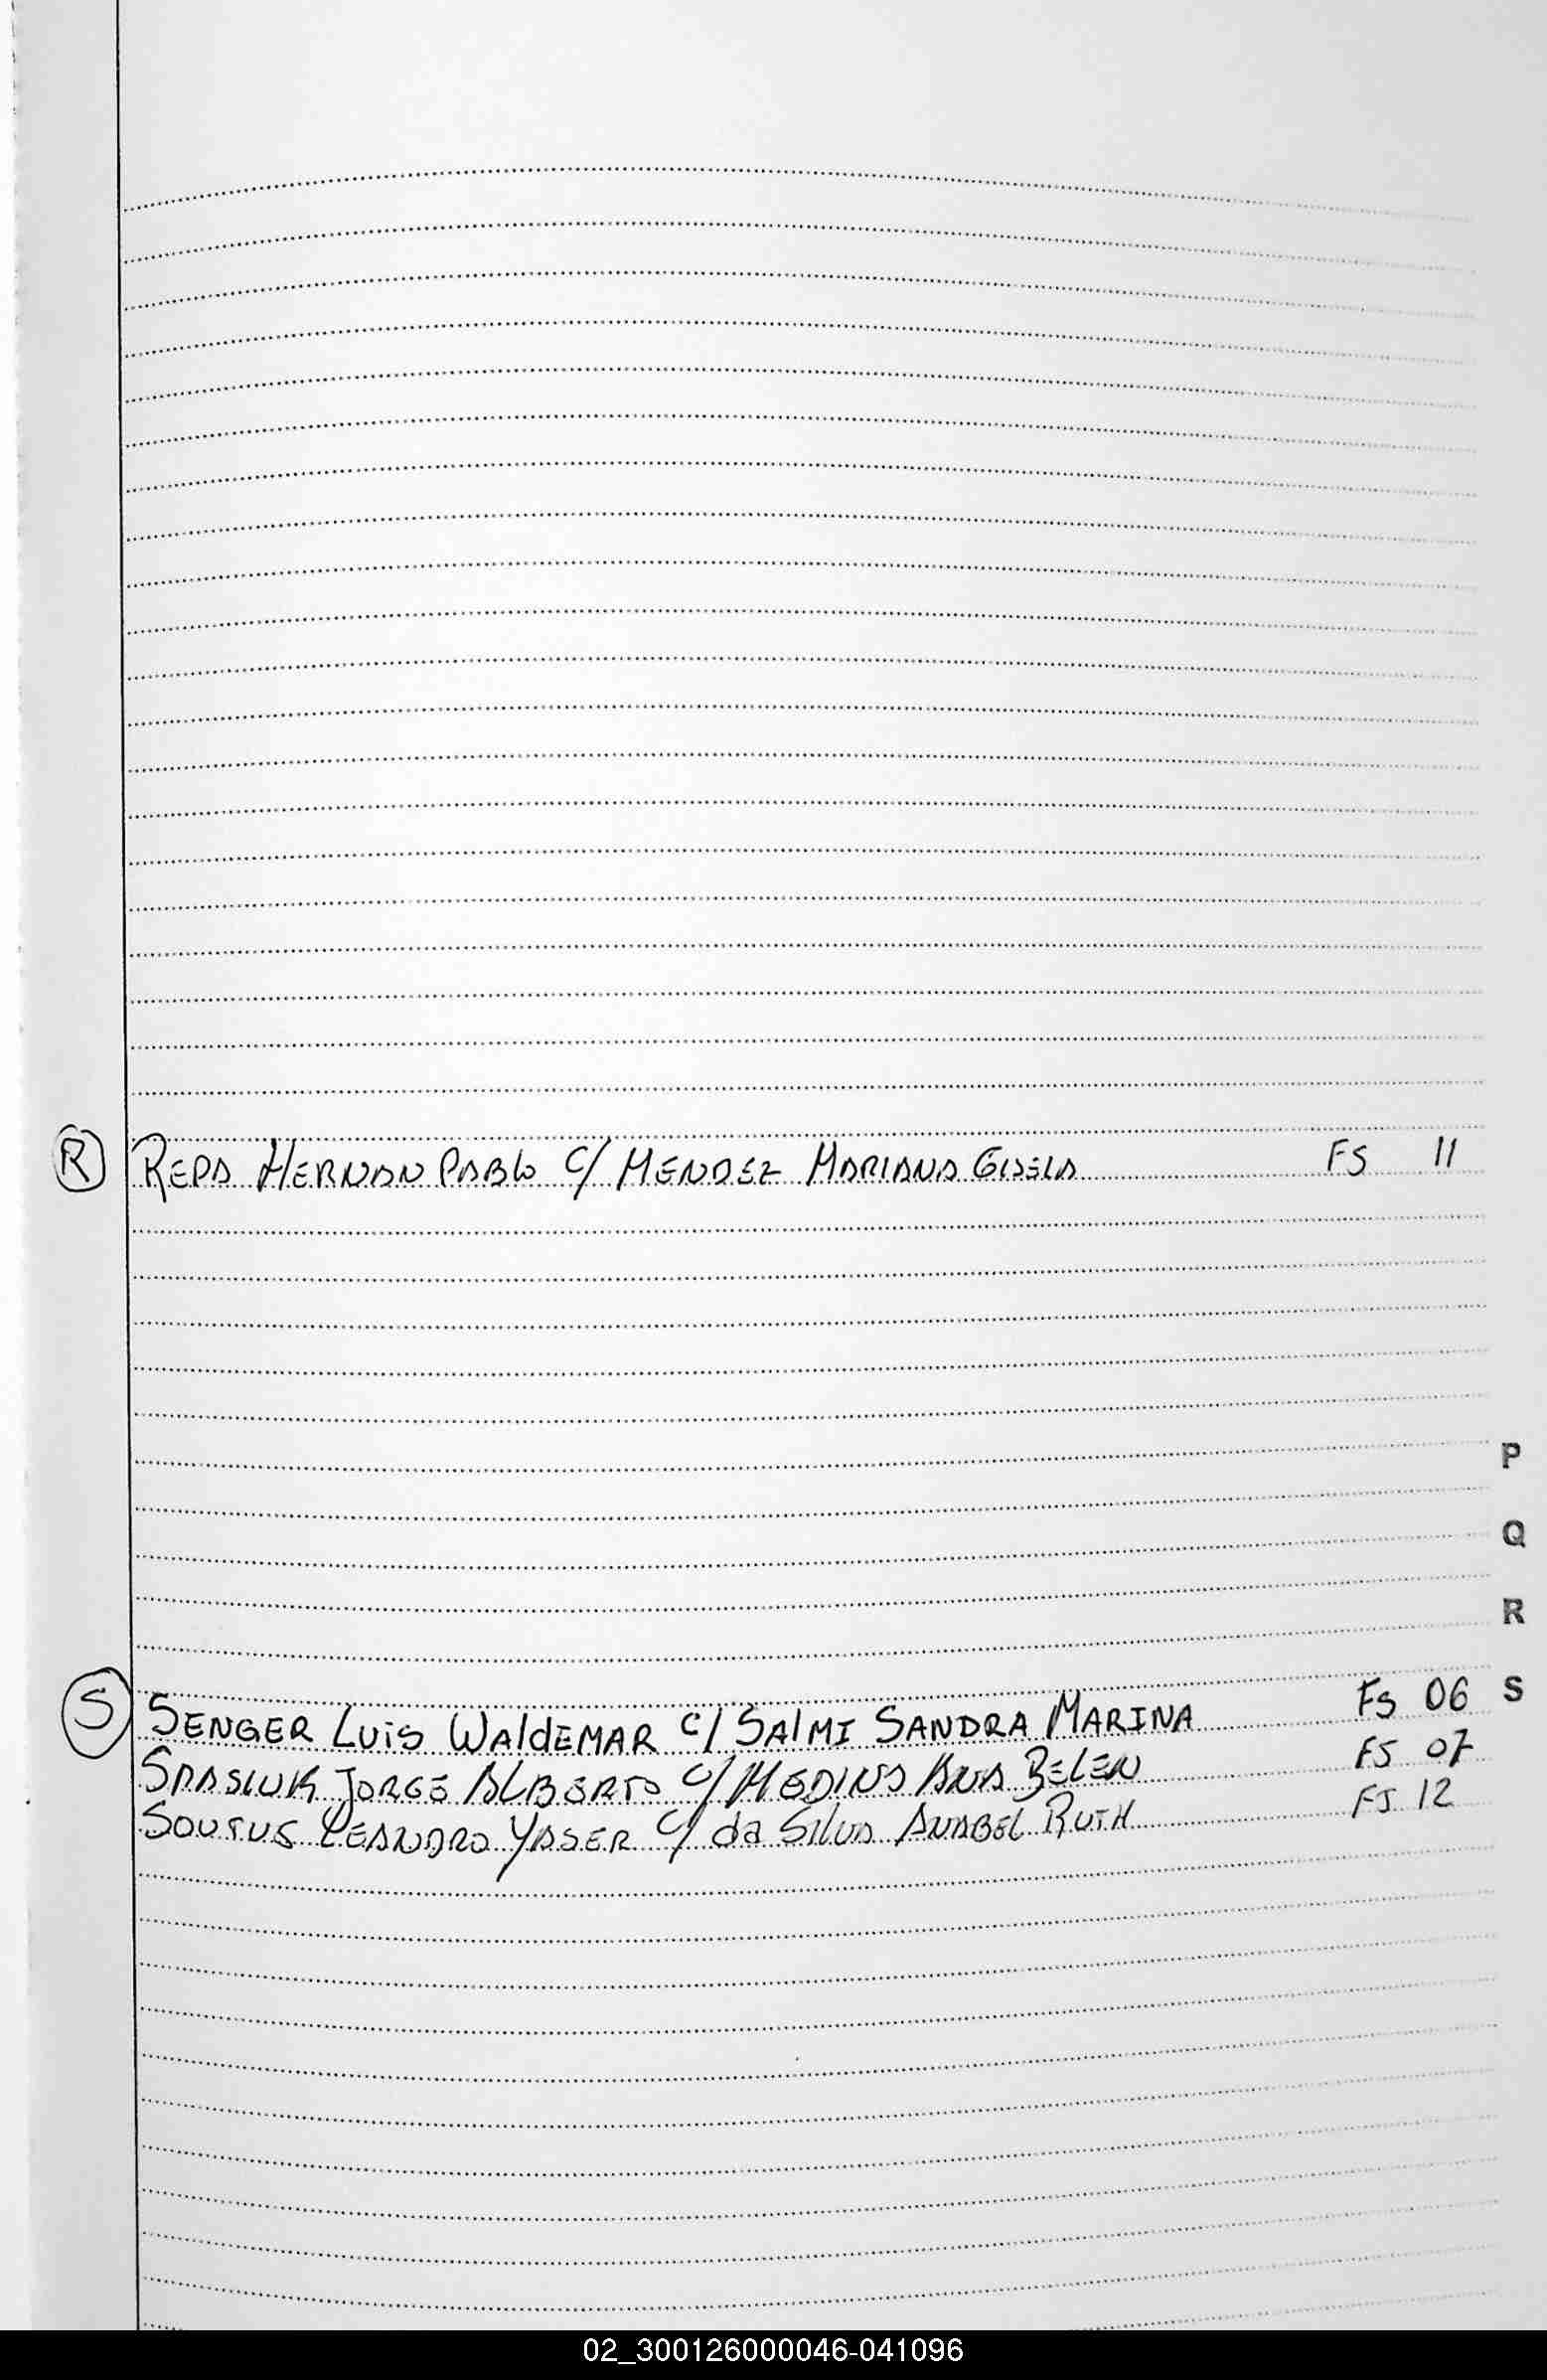 R REPA HERNAN PABLO C/ MENDEZ MARIANA GISELA FS 11
P
Q
R
S
S SENGER LUIS WALDEMAR C/ SALMI SANDRA MARINA FS 06
SPASIUK JORGE ALBERTO C/ MEDINA ANA BELEN FS 07
LEANDRO YASER C/ da SILVA ANABEL RUTH FS 12
02_300126000046-041096